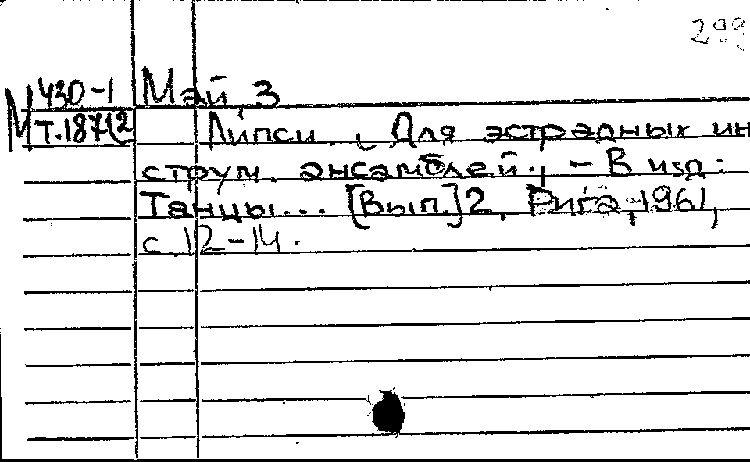 299
М 430-1 Май, З
Т.187/2 Липси. Для эстрадных ин
струм. ансамблей. - В изд:
Танцы... [Вып.] 2, Рига, 1961,
с. 12-14.